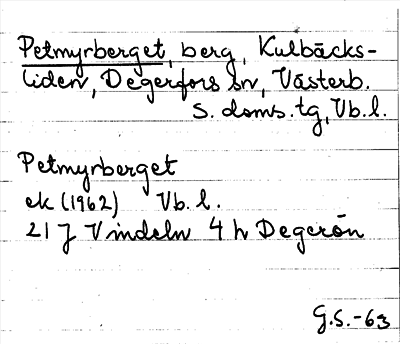 Petmyrberget, berg, Kulbäcks-
liden, Degerfors sn, Västerb.
s. doms. tg, Vb. l.
Petmyrberget
ek (1962) Vb. l.
21 J Vindeln 4 h Degerön
G.S.-63